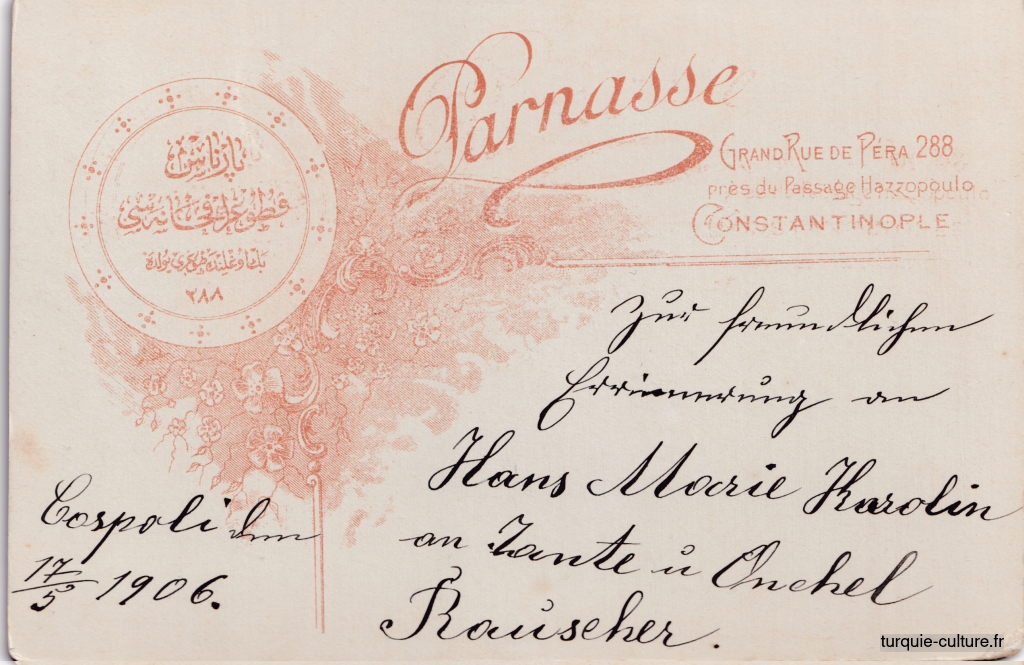 Parnasse
Grand Rue de Péra 288
près du Passage Hazzopoulo
Constantinople
پارناس
فطوغرافخانه‌سی
بك اوغلنده طوغری یولده
٢٨٨
Zur freundlichen
Errinnerung an
Hans Marie Karolin
an Tante u Onchel
Rauscher.
Cospoli den
17/5 1906.
turquie-culture.fr